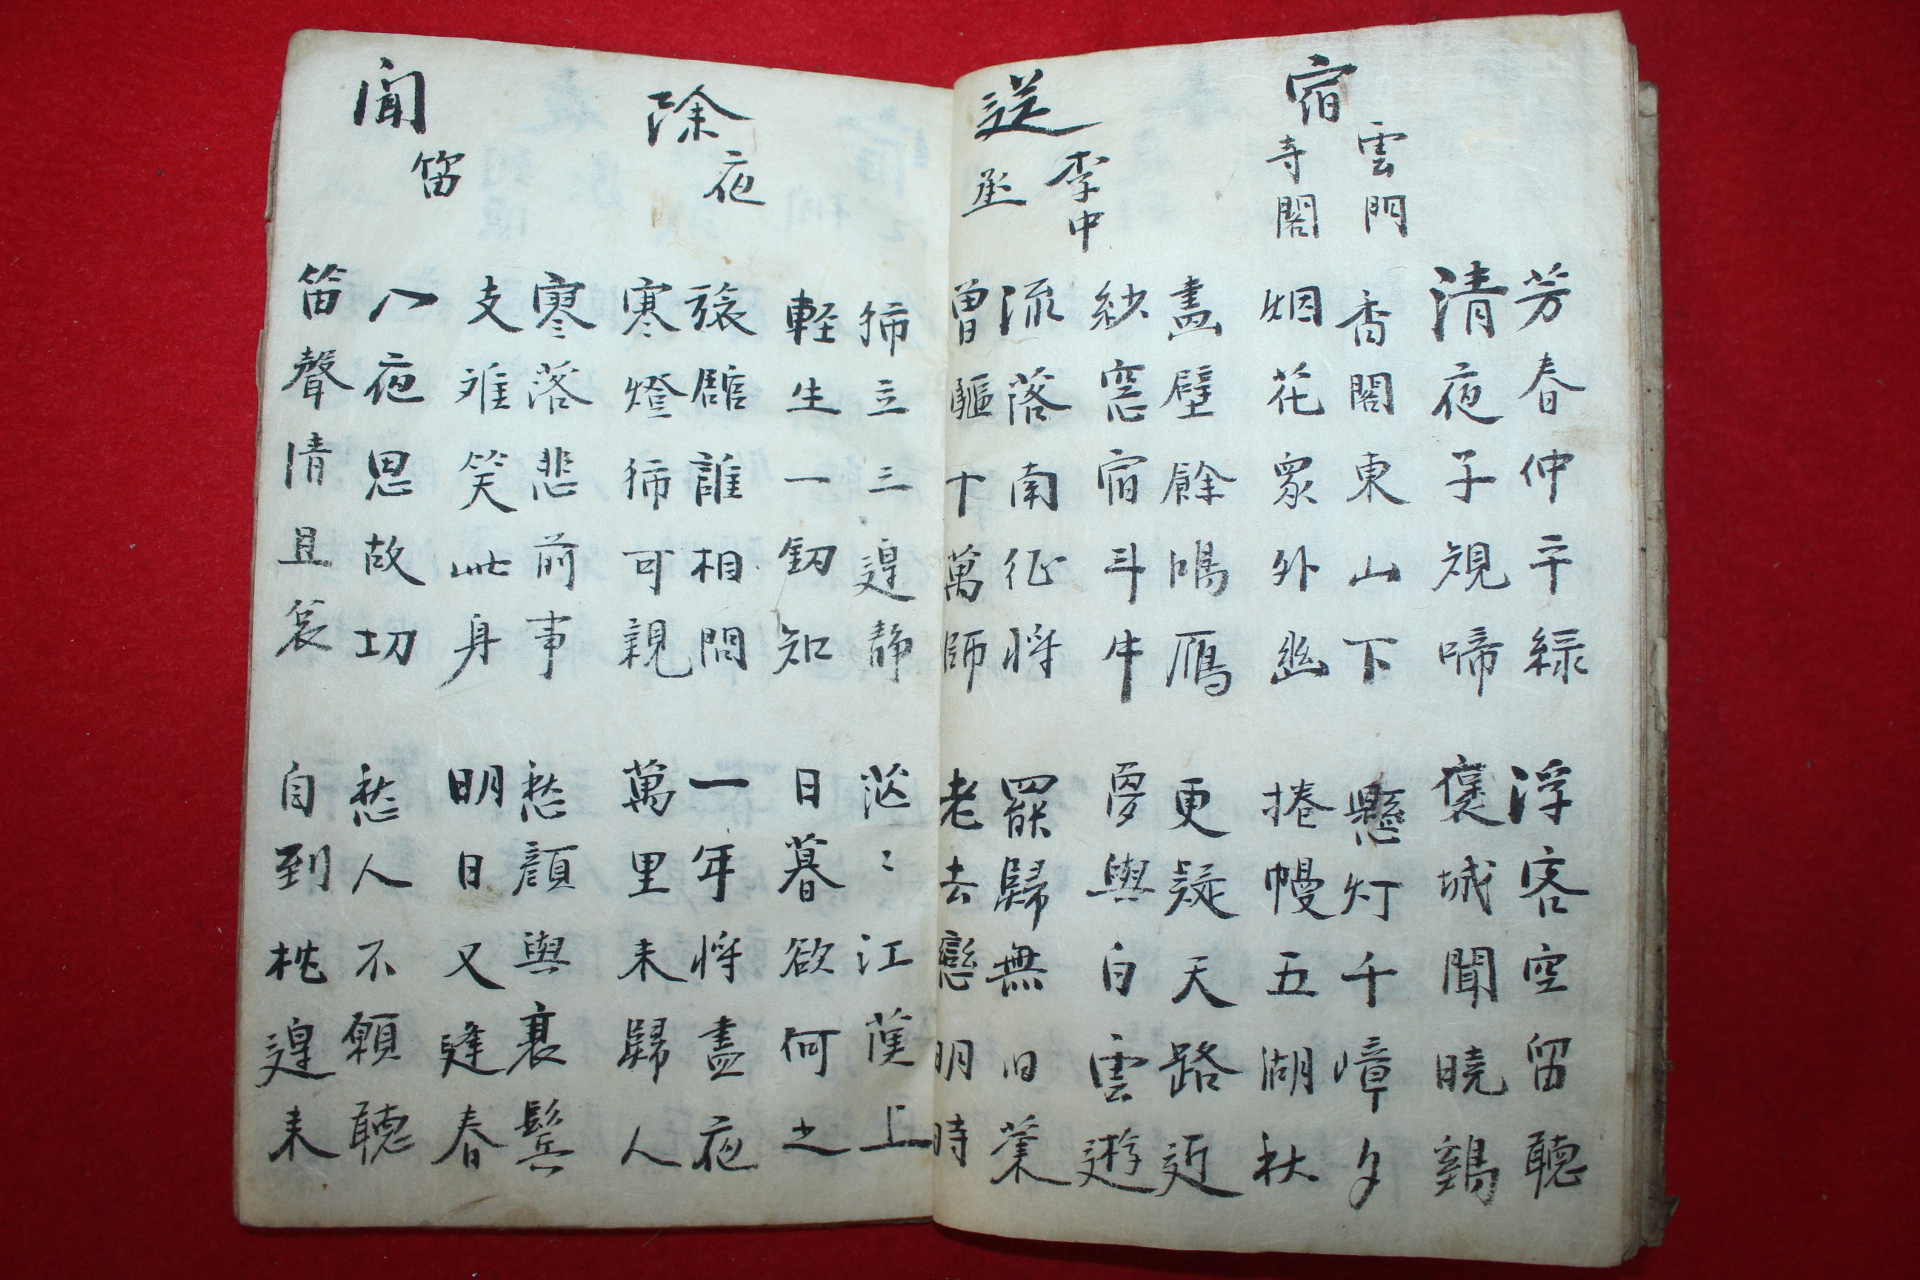 芳春仲干緑 浮客空留聽
清夜子規啼 褒城聞曉鷄
宿雲門寺閣
香閣東山下 懸灯千嶂夕
烟花象外幽 捲幔五湖秋
畫壁餘鴻雁 更疑天路近
紗窓宿斗牛 夢與白雲遊
送李中丞
流落南征將 罷歸無旧業
曾驅十萬師 老去戀明時
獨立三邊静 茫〻江漢上
軽生一釼知 日暮欲何之
除夜
旅舘誰相問 一年將盡夜
寒燈獨可親 萬里未歸人
寥落悲前事 愁顔與衰鬓
支难笑此身 明日又逢春
聞笛
入夜思故切 愁人不願聽
笛聲情且哀 自到枕邊来